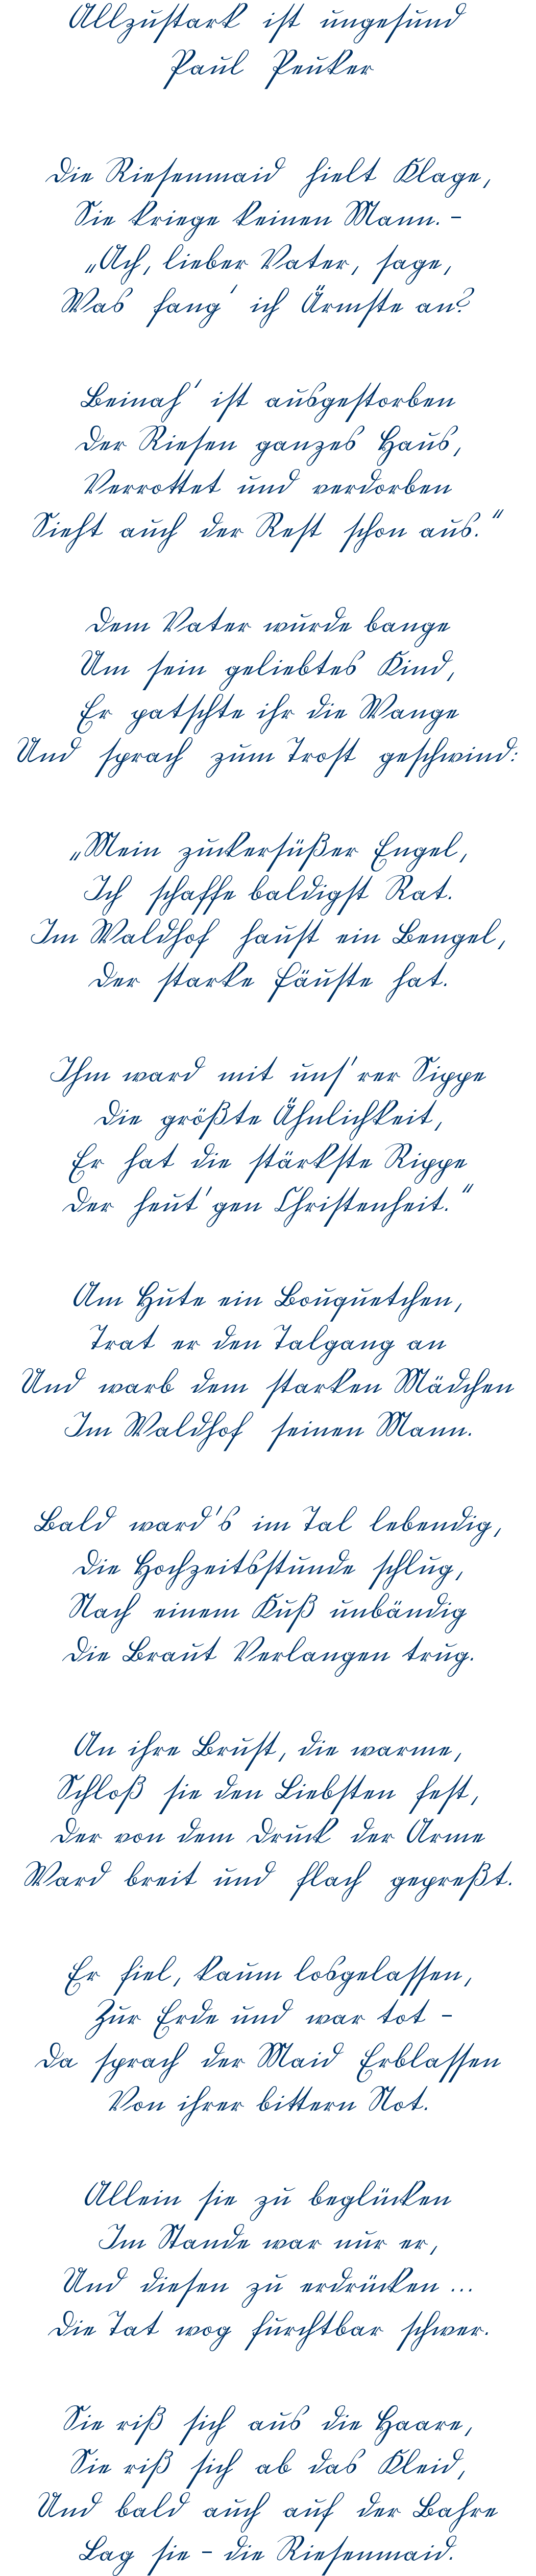 Allzustark ist ungesund
Paul Peuker
Die Riesenmaid hielt Klage,
Sie kriege keinen Mann. –
„Ach, lieber Vater, sage,
Was fang' ich Ärmste an?
Beinah' ist ausgestorben
Der Riesen ganzes Haus,
Verrottet und verdorben
Sieht auch der Rest schon aus.“
Dem Vater wurde bange
Um sein geliebtes Kind,
Er patschte ihr die Wange
Und sprach zum Trost geschwind:
„Mein zuckersüßer Engel,
Ich schaffe baldigst Rat.
Im Waldhof haust ein Bengel,
Der starke Fäuste hat.
Ihm ward mit uns'rer Sippe
Die größte Ähnlichkeit,
Er hat die stärkste Rippe
Der heut'gen Christenheit.“
Am Hute ein Bouquetchen,
Trat er den Talgang an
Und warb dem starken Mädchen
Im Waldhof seinen Mann.
Bald ward's im Tal lebendig,
Die Hochzeitsstunde schlug,
Nach einem Kuß unbändig
Die Braut Verlangen trug.
An ihre Brust, die warme,
Schloß sie den Liebsten fest,
Der von dem Druck der Arme
Ward breit und flach gepreßt.
Er fiel, kaum losgelassen,
Zur Erde und war tot –
Da sprach der Maid Erblassen
Von ihrer bittern Not.
Allein sie zu beglücken
Im Stande war nur er,
Und diesen zu erdrücken ...
Die Tat wog furchtbar schwer.
Sie riß sich aus die Haare,
Sie riß sich ab das Kleid,
Und bald auch auf der Bahre
Lag sie – die Riesenmaid.